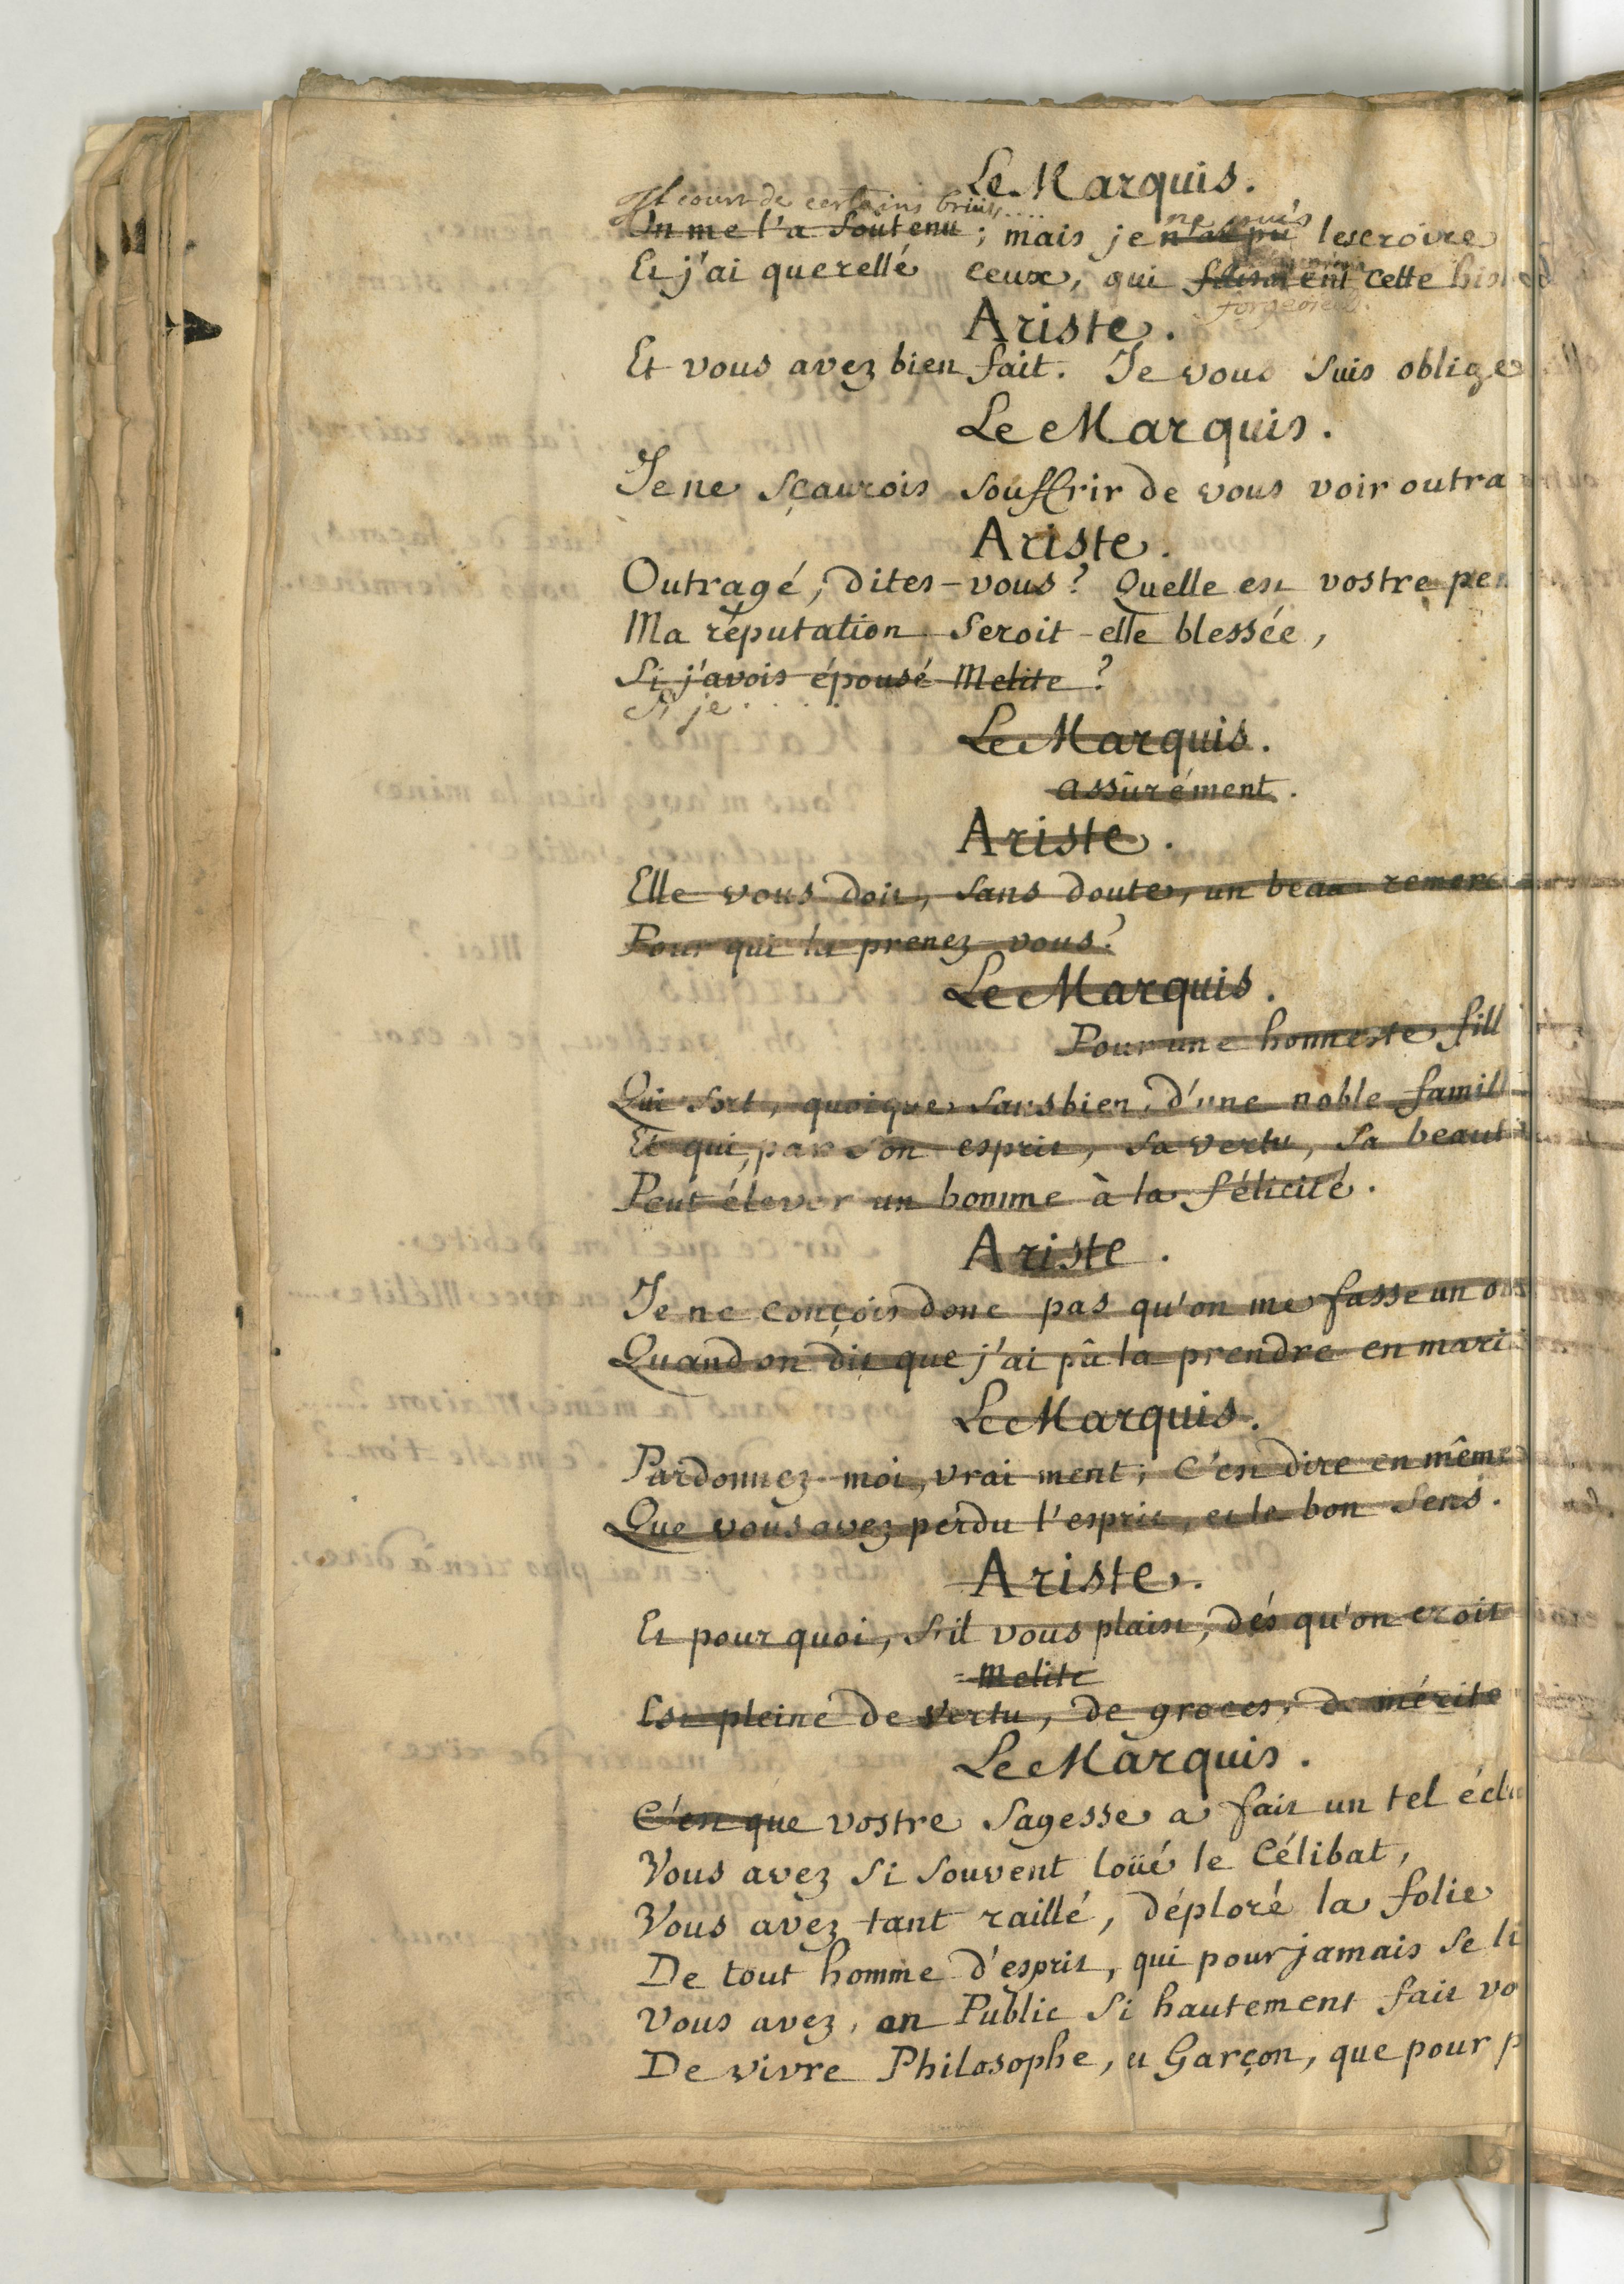 Le Marquis.
Il court de certains bruits....
On me l'a soutenu ; mais je n'ai pû les croire
ne puis
Et j'ai querellé ceux, qui faisoient cette his
forgeoient.
Ariste.
Et vous avez bien fait. Je vous suis oblige
Le Marquis.
Je ne sçaurois souffrir de vous voir outra
Ariste.
Outragé, dites-vous ? Quelle est vostre pen
Ma réputation seroit-elle blessée,
Si j'avois épousé Melite ?
Si je.....
Le Marquis.
assûrément.
Ariste.
Elle vous doit, sans doute, un beau remerc
Pour qui la prenez vous ?
Le Marquis.
Pour une honneste fill
Qui sort, quoique sans bien, d'une noble famill
Et qui, par son esprit, sa vertu, sa beaut
Peut élever un homme à la félicité.
Ariste.
Je ne conçois donc pas qu'on me fasse un o
Quand on dit que j'ai pû la prendre en mari
Le Marquis.
Pardonnez moi, vrai ment ; C'est dire en même
Que vous avez perdu l'esprit, et le bon sens.
Ariste.
Et pour quoi, s'il vous plaist, dés qu'on croit
Melite
Est pleine de vertu, de graces, de mérite
Le Marquis.
C'est que vostre sagesse a fait un tel écla
Vous avez si souvent loüé le Célibat,
Vous avez tant raillé, déploré la folie
De tout homme d'esprit, qui pour jamais se li
Vous avez, en Public si hautement fait vo
De vivre Philosophe, et Garçon, que pour p